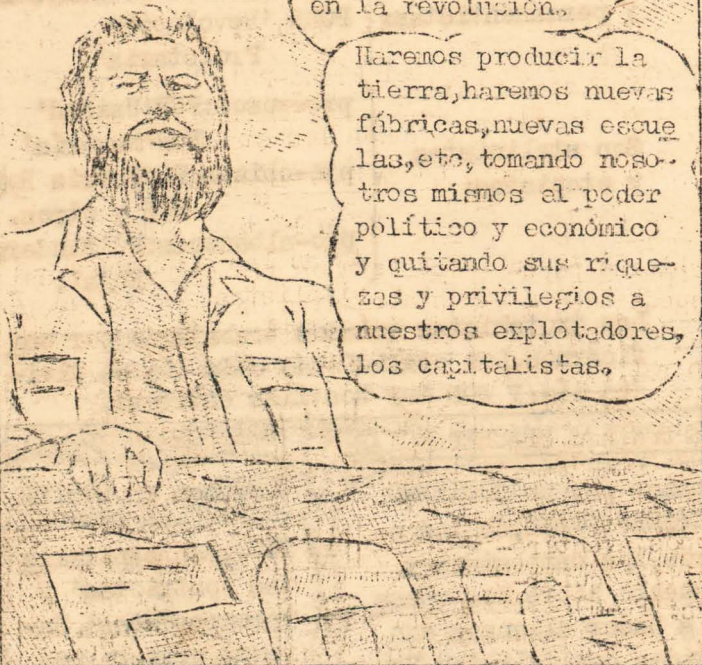 en la revolución.
Haremos producir la
tierra,haremos nuevas
fábricas,nuevas escue
las,etc,tomando noso-
tros mismos el poder
político y económico
y quitando sus rique-
zas y privilegios a
nuestros explotadores,
los capitalistas.